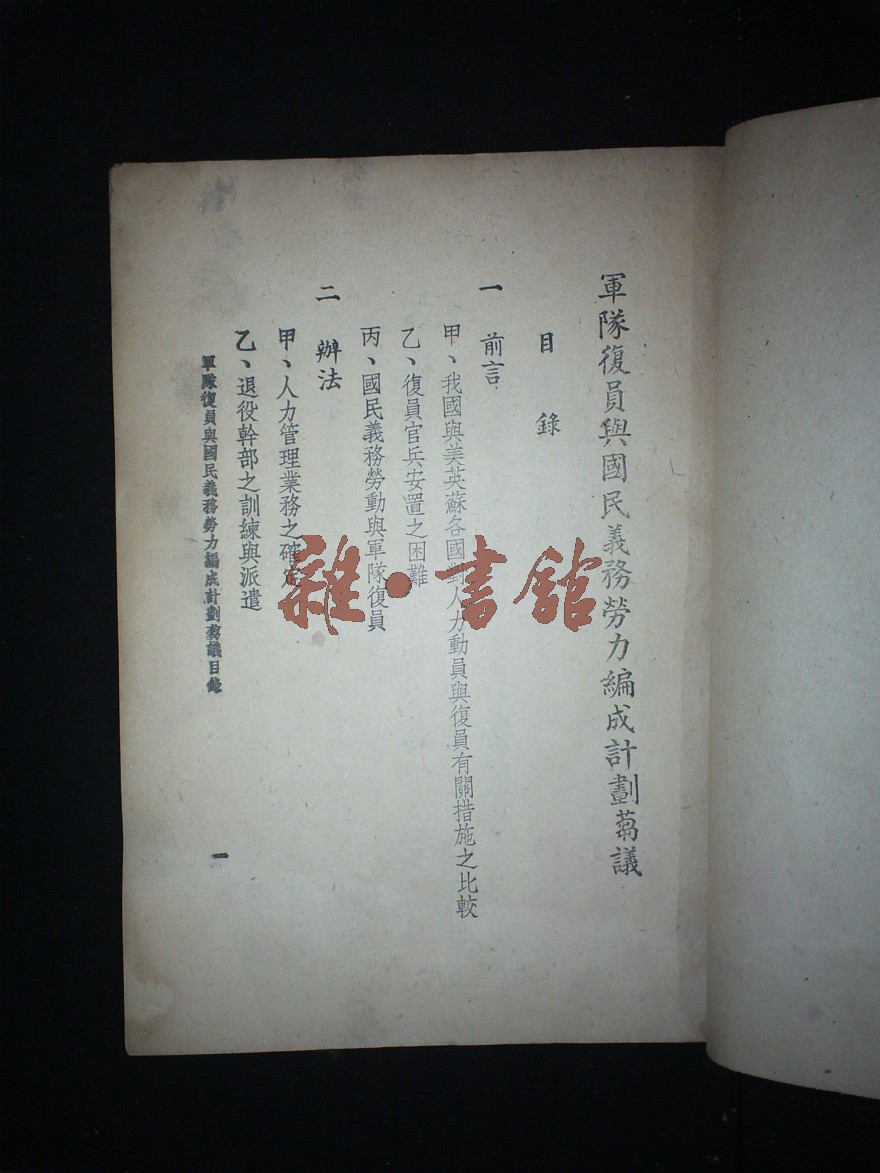 軍隊復員與國民義務勞力編成計劃芻議
目錄
一 前言
甲、我國與美英蘇各國對人力動員與復員有關措施之比較
乙、復員官兵安置之困難
丙、國民義務勞動與軍隊復員
二 辦法
甲、人力管理業務之確定
乙、退役幹部之訓練與派遣
軍隊復員與國民義務勞力編成計劃芻議目錄
一
雜·書館